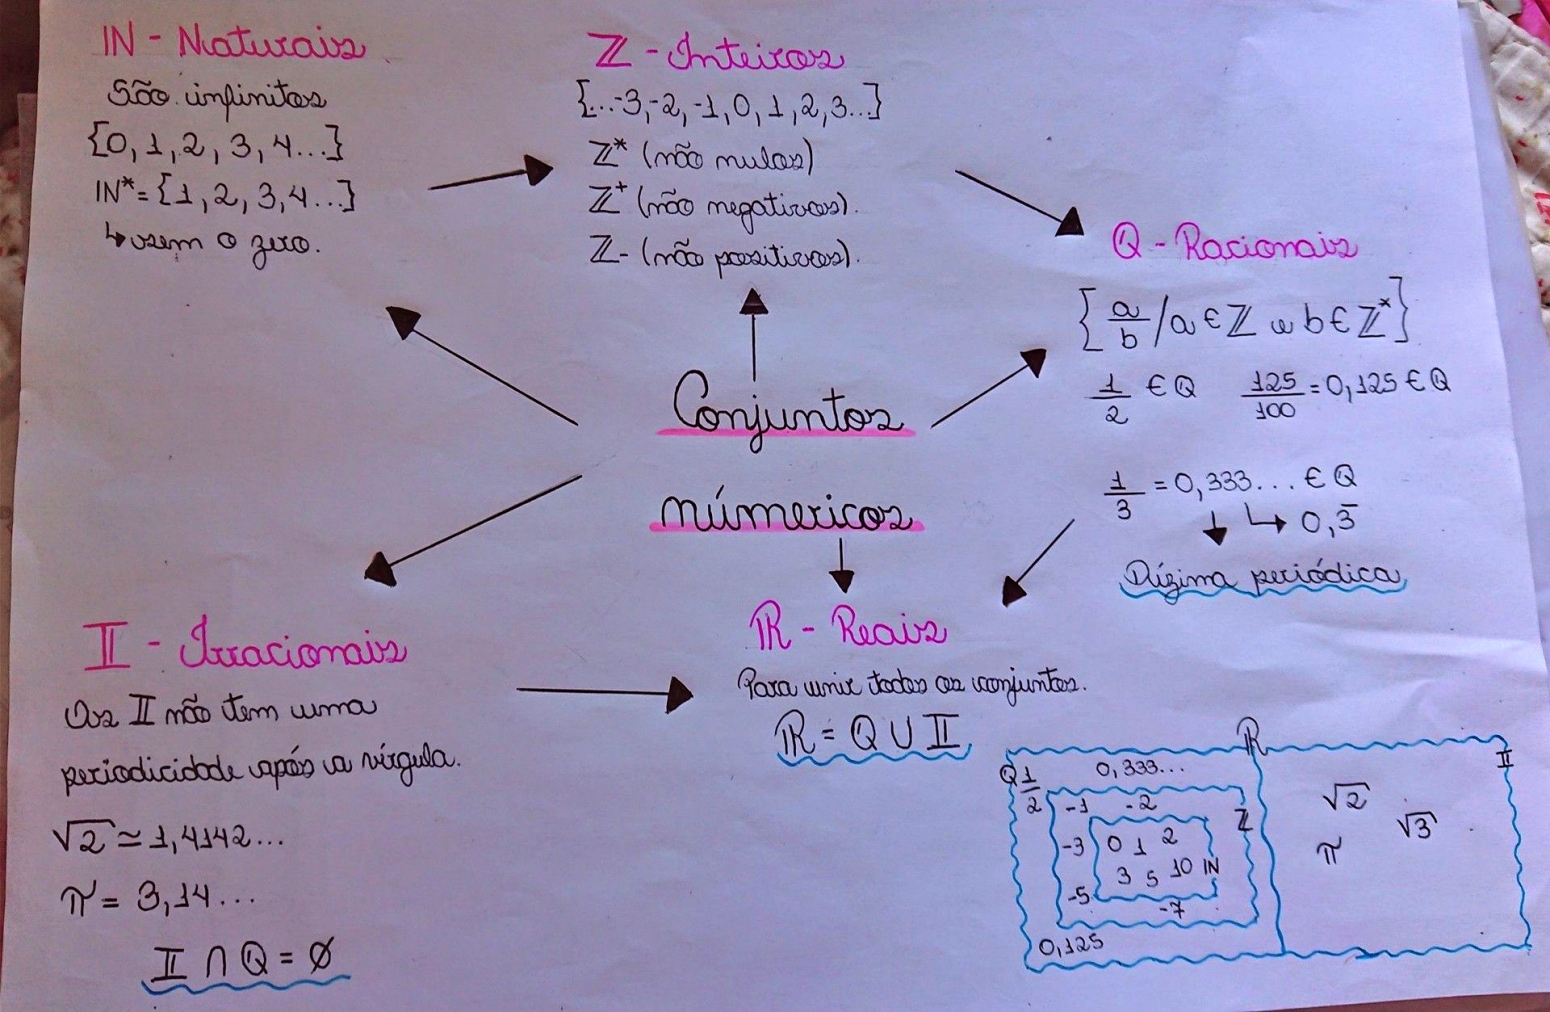 IN - Naturais
São infinitos
{0, 1, 2, 3, 4...}
IN* = {1, 2, 3, 4...}
↳ sem o zero.
ℤ - Inteiros
{...-3, -2, -1, 0, 1, 2, 3...}
ℤ* (não nulos)
ℤ⁺ (não negativos).
ℤ- (não positivos).
Q - Racionais
{a/b / a ∈ ℤ e b ∈ ℤ*}
1/2 ∈ Q 125/100 = 0,125 ∈ Q
1/3 = 0,333... ∈ Q
↓ ↳ 0,3̅
Dízima periódica
Conjuntos
númericos
𝕀 - Irracionais
Os 𝕀 não tem uma
periodicidade após a vírgula.
√2 ≃ 1,4142...
π = 3,14...
𝕀 ∩ Q = ∅
ℝ - Reais
Para unir todos os conjuntos.
ℝ = Q ∪ 𝕀
ℝ
Q 1/2 0,333... 𝕀
-1 -2 ℤ √2
-3 0 1 2 π √3
3 5 10 IN
-5 -7
0,125